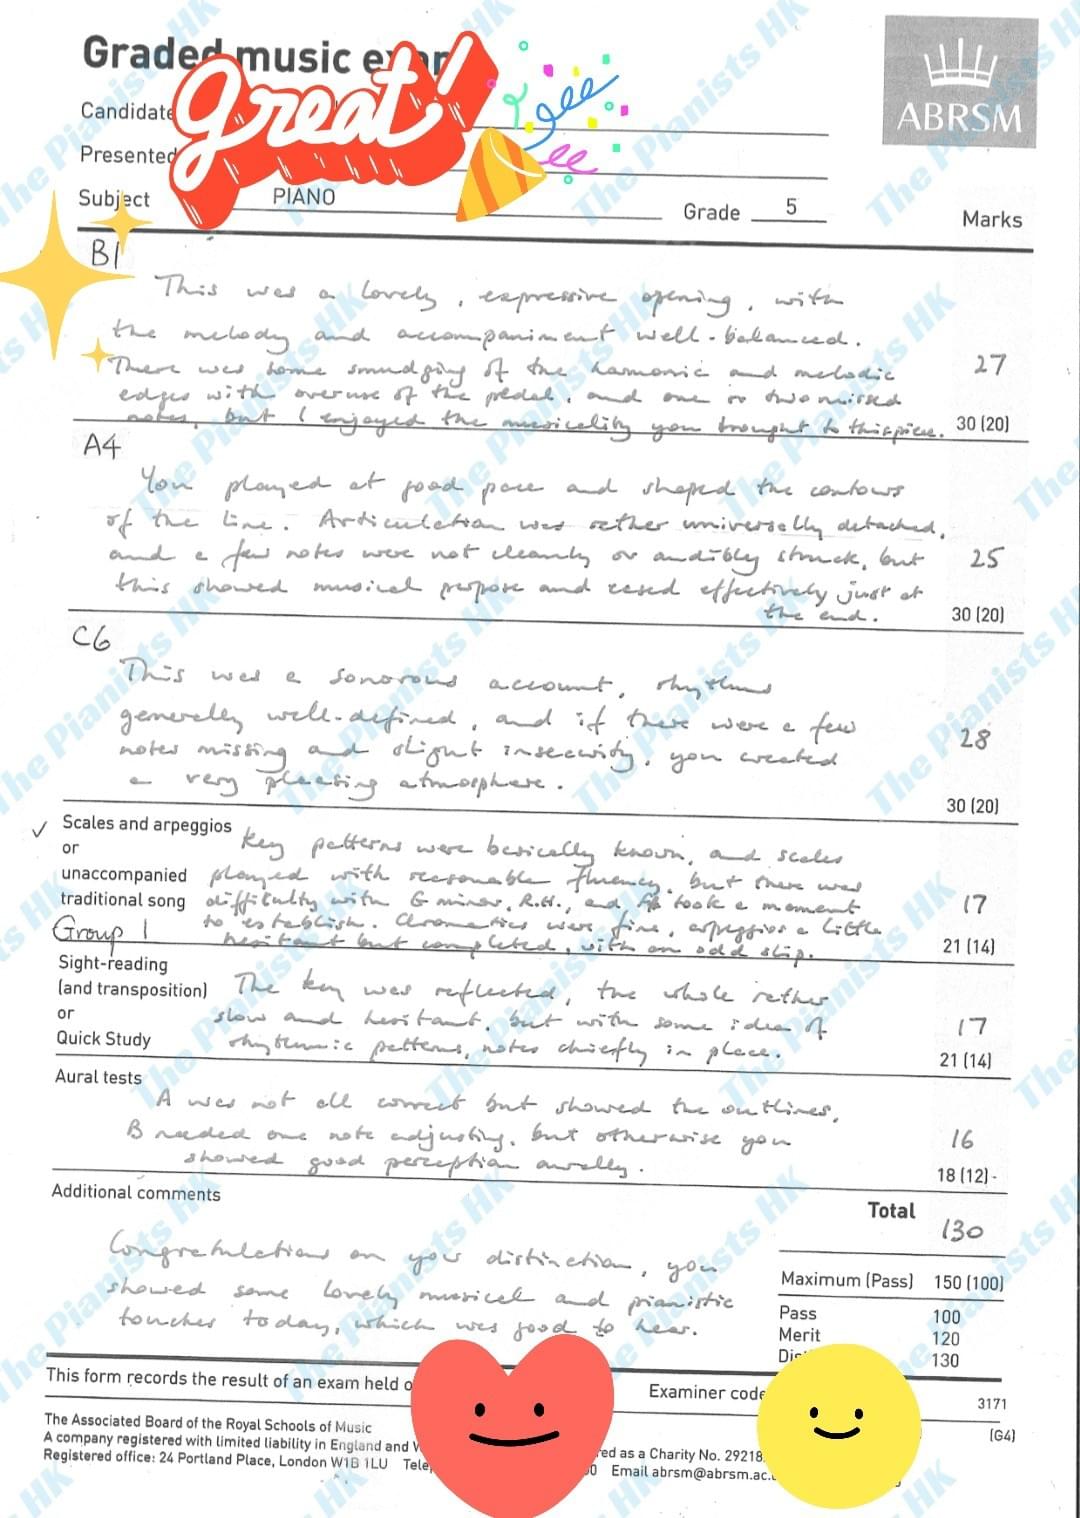 Graded music exam
great!
ABRSM
Candidate
Presented
Subject PIANO Grade 5 Marks
B1
This was a lovely, expressive opening, with
the melody and accompaniment well-balanced.
There was some smudging of the harmonic and melodic
edges with overuse of the pedal, and one or two missed
notes, but I enjoyed the musicality you brought to this piece.
27
30 (20)
A4
You played at good pace and shaped the contours
of the line. Articulation was rather universally detached,
and a few notes were not cleanly or audibly struck, but
this showed musical purpose and eased effectively just at
the end.
25
30 (20)
C6
This was a sonorous account, rhythms
generally well-defined, and if there were a few
notes missing and slight insecurity, you created
a very pleasing atmosphere.
28
30 (20)
✓ Scales and arpeggios
or
unaccompanied
traditional song
Group 1
Key patterns were basically known, and scales
played with reasonable fluency, but there was
difficulty with G minor, R.H., and took a moment
to establish. Chromatics were fine, arpeggios a little
hesitant but completed, with an odd slip.
17
21 (14)
Sight-reading
(and transposition)
or
Quick Study
The key was reflected, the whole rather
slow and hesitant, but with some idea of
rhythmic patterns, notes chiefly in place.
17
21 (14)
Aural tests
A was not all correct but showed the outlines,
B needed one note adjusting, but otherwise you
showed good perception aurally.
16
18 (12)
Additional comments
Congratulations on your distinction, you
showed some lovely musical and pianistic
touches today, which was good to hear.
Total 130
Maximum (Pass) 150 (100)
Pass 100
Merit 120
Dis 130
This form records the result of an exam held o
Examiner code 3171
(G4)
The Associated Board of the Royal Schools of Music
A company registered with limited liability in England and W
ed as a Charity No. 29218
Registered office: 24 Portland Place, London W1B 1LU Tele
0 Email abrsm@abrsm.ac.
The Pianists HK